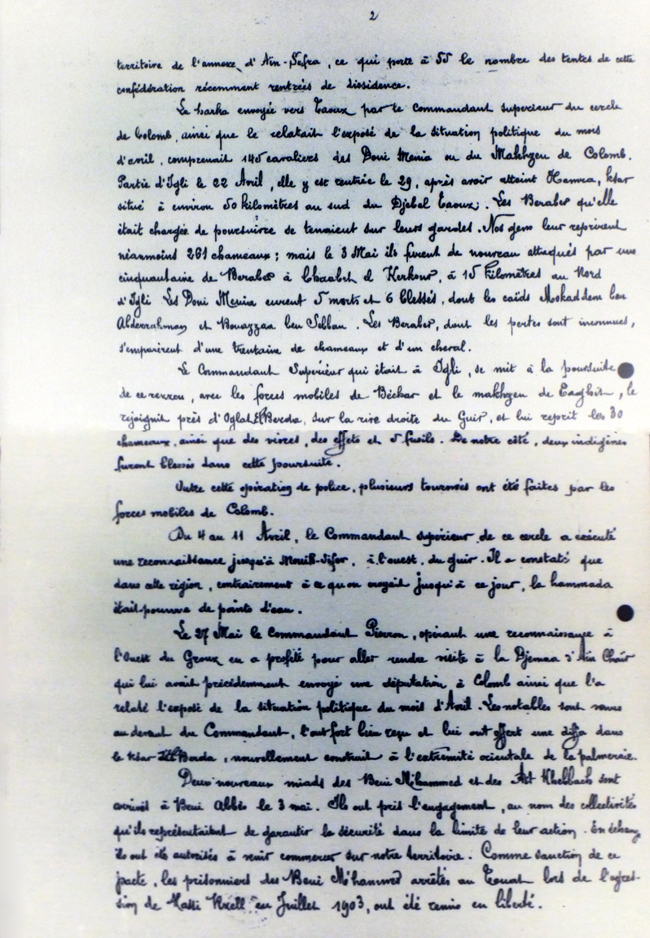 2
territoire de l'annexe d'Aïn-Sefra, ce qui porte à 55 le nombre des tentes de cette
confédération récemment rentrées de dissidence.
La harka envoyée vers Taouz par le Commandant supérieur du cercle
de Colomb, ainsi que le relatait l'exposé de la situation politique du mois
d'avril, comprenait 140 cavaliers des Doui Menia ou du Makhzen de Colomb.
Partie d'Igli le 22 Avril, elle y est rentrée le 29, après avoir atteint Hamra, ksar
situé à environ 50 kilomètres au sud du Djebel Taouz. Les Beraber qu'elle
était chargée de poursuivre se tenaient sur leurs gardes. Nos gens leur reprirent
néanmoins 261 chameaux ; mais le 3 Mai ils furent de nouveau attaqués par une
cinquantaine de Beraber à el Kerkour, à 15 kilomètres au Nord
d'Igli. Les Doui Menia eurent 5 morts et 6 blessés, dont les caïds Mokaddem ben
Abderrahman et Bouazzaa ben Sebban. Les Beraber, dont les pertes sont inconnues,
s'emparèrent d'une trentaine de chameaux et d'un cheval.
Le Commandant Supérieur qui était à Igli, se mit à la poursuite
de ce rezzou, avec les forces mobiles de Béchar et le makhzen de Taghit, le
rejoignit près d'Oglat El Berda, sur la rive droite du Guir, et lui reprit les 30
chameaux, ainsi que des vivres, des effets et 5 fusils. De notre côté, deux indigènes
furent blessés dans cette poursuite.
Outre cette opération de police, plusieurs tournées ont été faites par les
forces mobiles de Colomb.
Du 4 au 11 Avril, le Commandant supérieur de ce cercle a exécuté
une reconnaissance jusqu'à, à l'ouest du guir. Il a constaté que
dans cette région, contrairement à ce qu'on croyait jusqu'à ce jour, la hammada
était pourvue de points d'eau.
Le 27 Mai le Commandant Pierron, opérant une reconnaissance à
l'Ouest du Grouz en a profité pour aller rendre visite à la Djemaa d'Aïn Chaïr
qui lui avait précédemment envoyé une députation à Colomb ainsi que l'a
relaté l'exposé de la situation politique du mois d'Avril. Les notables sont venus
au devant du Commandant, l'ont fort bien reçu et lui ont offert une diffa dans
le Ksar El Borda, nouvellement construit à l'extrémité orientale de la palmeraie.
Deux nouveaux miads des Beni M'hammed et des Aït Khebbach sont
arrivés à Beni Abbès le 3 mai. Ils ont pris l'engagement, au nom des collectivités
qu'ils représentaient de garantir la sécurité dans la limite de leur action. En échange
ils ont été autorisés à venir commercer sur notre territoire. Comme sanction de ce
pacte, les prisonniers des Beni M'hammed arrêtés au Touat lors de l'agres-
sion de Hassi Rzell en Juillet 1903, ont été remis en liberté.